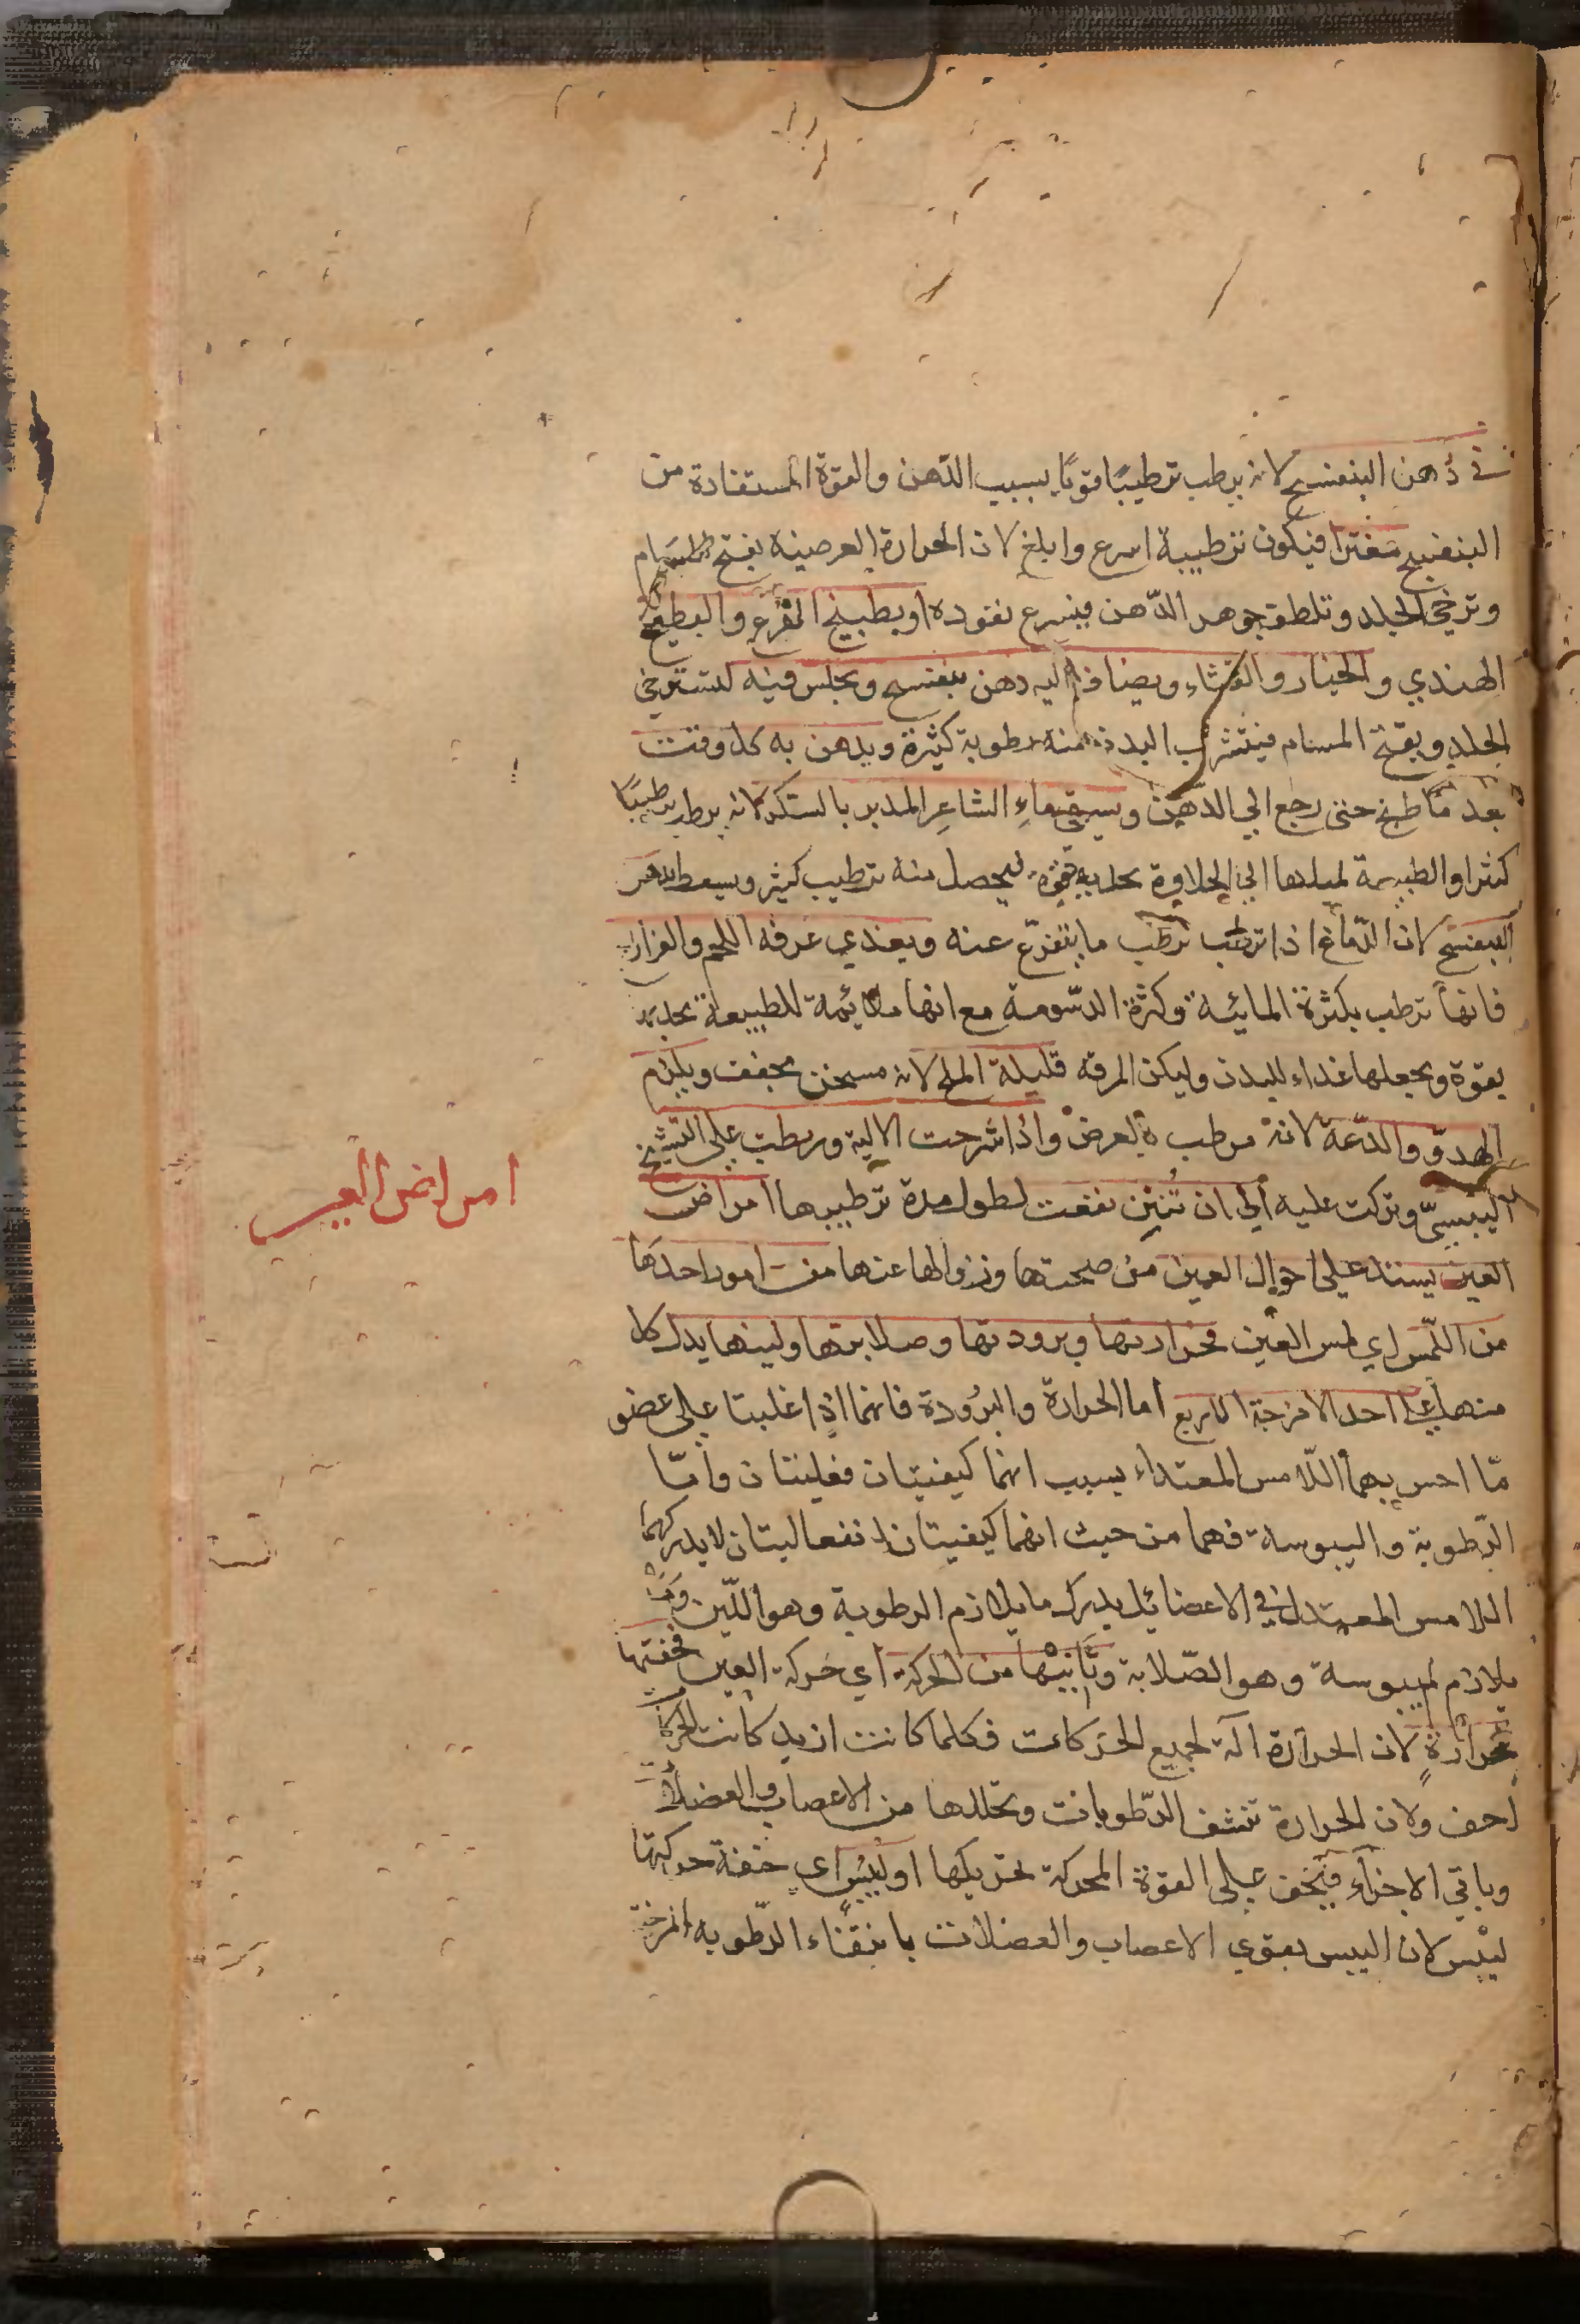 في دُهن البنفسج لانه يرطب ترطيبًا قويًا بسبب الدّهن والقوة المستفادة من
البنفسج مفترا فيكون ترطيبة اسرع وابلغ لان الحرارة العرضية يفتح المسام
وترخي الجلد وتلطف جوهر الدّهن فيسرع نفوده او بطبيخ القرع والبطيخ
الهندي والخيار والقثاء ويضاف اليه دهن بنفسج ويجلس فيه ليسترخي
الجلد ويفتح المسام فيتشرب البدن منه رطوبة كثيرة ويدهن به كل وقت
بعد ما طبخ حتى رجع الي الدهن ويسقي ماء الشاعر المدبر بالسكر لانه يرطب ترطيبًا
كثيرا والطبيعة لميلها الي الحلاوة تجذبه بقوة فيحصل منه ترطيب كثير ويسعط بدهن
البنفسج لان الدّماغ اذا ترطب ترطب ما يتفرّع عنه ويغذي بمرقه اللحم والفراريج
فانها ترطب بكثرة المائية وكثرة الدّسومة مع انها ملائمة للطبيعة تجذبه
بقوة ويجعلها غذاء للبدن وليكن المرقه قليلة الملح لانه مسخن مجفف ويلزم
الهدوّ والدّعة لانه مرطب بالعرض واذا شرحت الالية وربطت علي التشنج
اليبسيّ وتركت عليه الي ان تُنتِن نفعت لطول مدة ترطيبها امراض
العين يستدل علي احوال العين من صحتها وزوالها عنها من امور احدها
من اللّمس اي لمس العين فحرارتها وبرودتها وصلابتها ولينها يدل كل
منها علي احد الامزجة الاربع اما الحرارة والبرُودة فانهما اذا غلبتا علي عضو
مّا احس بهما اللّامس المعتدل بسبب انهما كيفيتان فعليتان وامّا
الرّطوبة واليبوسة فهما من حيث انهما كيفيتان انفعاليتان لا يدركهما
اللامس المعتدل في الاعضا بل يدرك ما يلازم الرطوبة وهو اللّين وما
يلازم اليبوسة وهو الصّلابة وثانيها من الحركة اي حركة العين فخفتها
لحرارةٍ لان الحرارة آلة لجميع الحركات فكلما كانت ازيد كانت الحركة
اخف ولان الحرارة تنشف الرّطوبات وتحللها من الاعصاب والعضلات
وباقي الاجزاء فيخف علي القوة المحركة تحريكها او ليُبْس اي خفة حركتها
ليُبْس لان اليبس يقوي الاعصاب والعضلات بانتقاء الرّطوبه المرخية
امراض العين